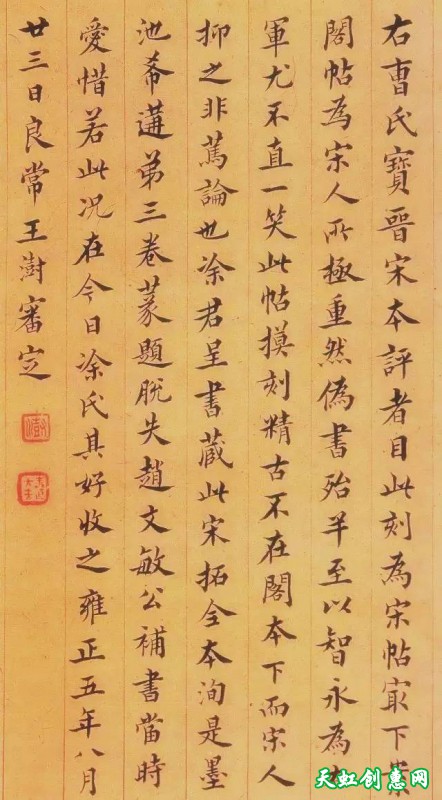 右曹氏寶晉宋本評者目此刻為宋帖冣下業
閣帖為宋人所極重然偽書殆半至以智永為右
軍尤不直一笑此帖摸刻精古不在閣本下而宋人
抑之非篤論也涂君呈書藏此宋拓全本洵是墨
池希遘弟三卷篆題脫失趙文敏公補書當時
愛惜若此況在今日涂氏其好收之雍正五年八月
廿三日良常王澍審定
天虹创意网